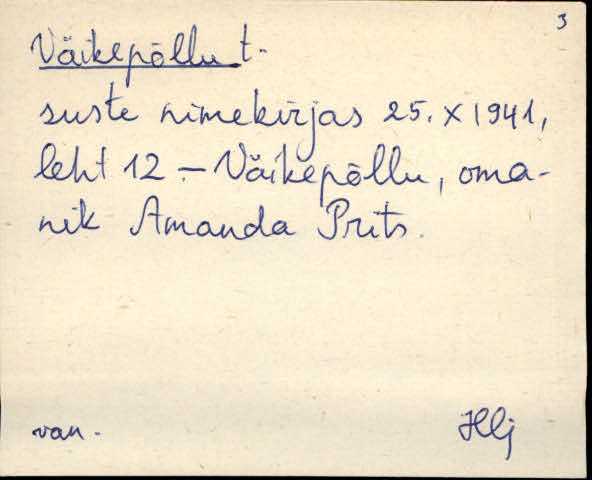 3
Väikepõllu t.
suste nimekirjas 25. X 1941,
leht 12 – Väikepõllu, oma-
nik Amanda Prits.
van. Hlj